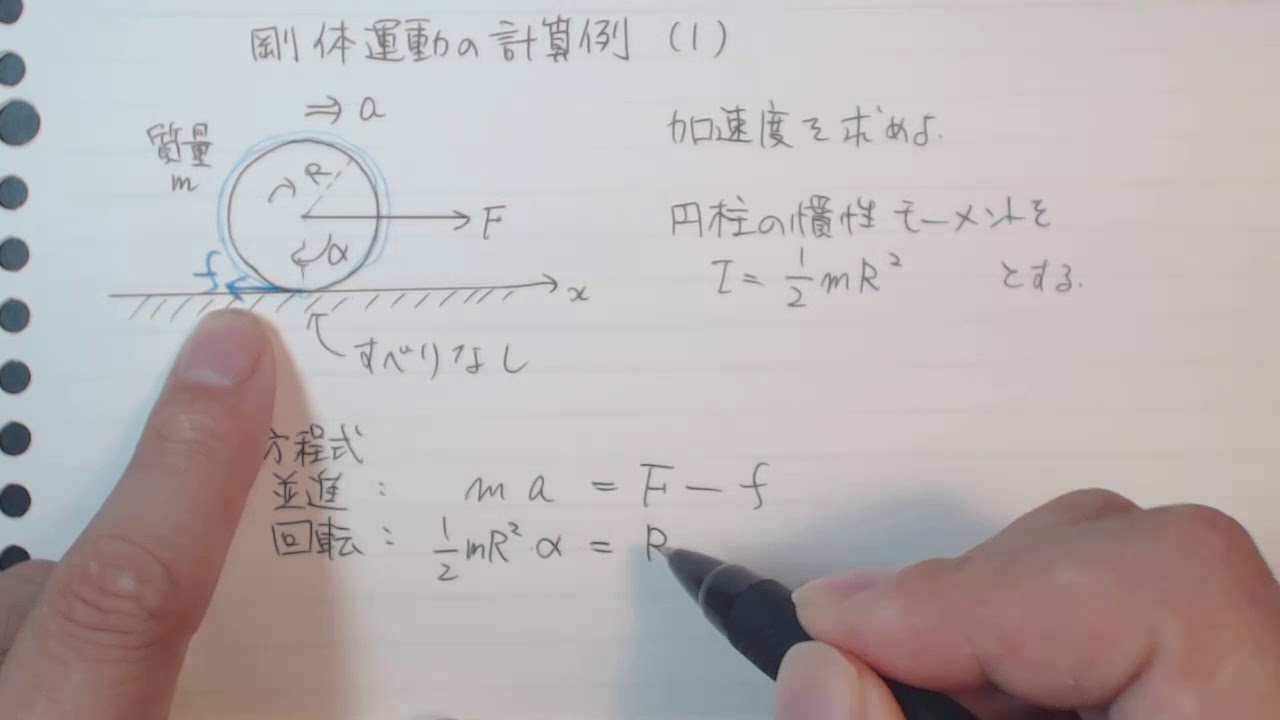 剛体運動の計算例 (1)
⇒ a
質量
m
R
F
α
f
x
すべりなし
加速度を求めよ.
円柱の慣性モーメントを
I = 1/2 mR² とする.
方程式
並進 : m a = F - f
回転 : 1/2 mR² α = R